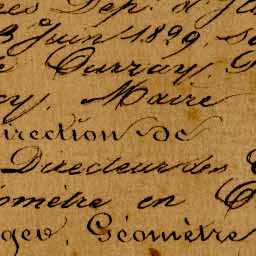 Dép. d'
3 Juin 1829.
Curray,
cy, Maire
irection de
Directeur des
omètre en C
ger, Géomètre